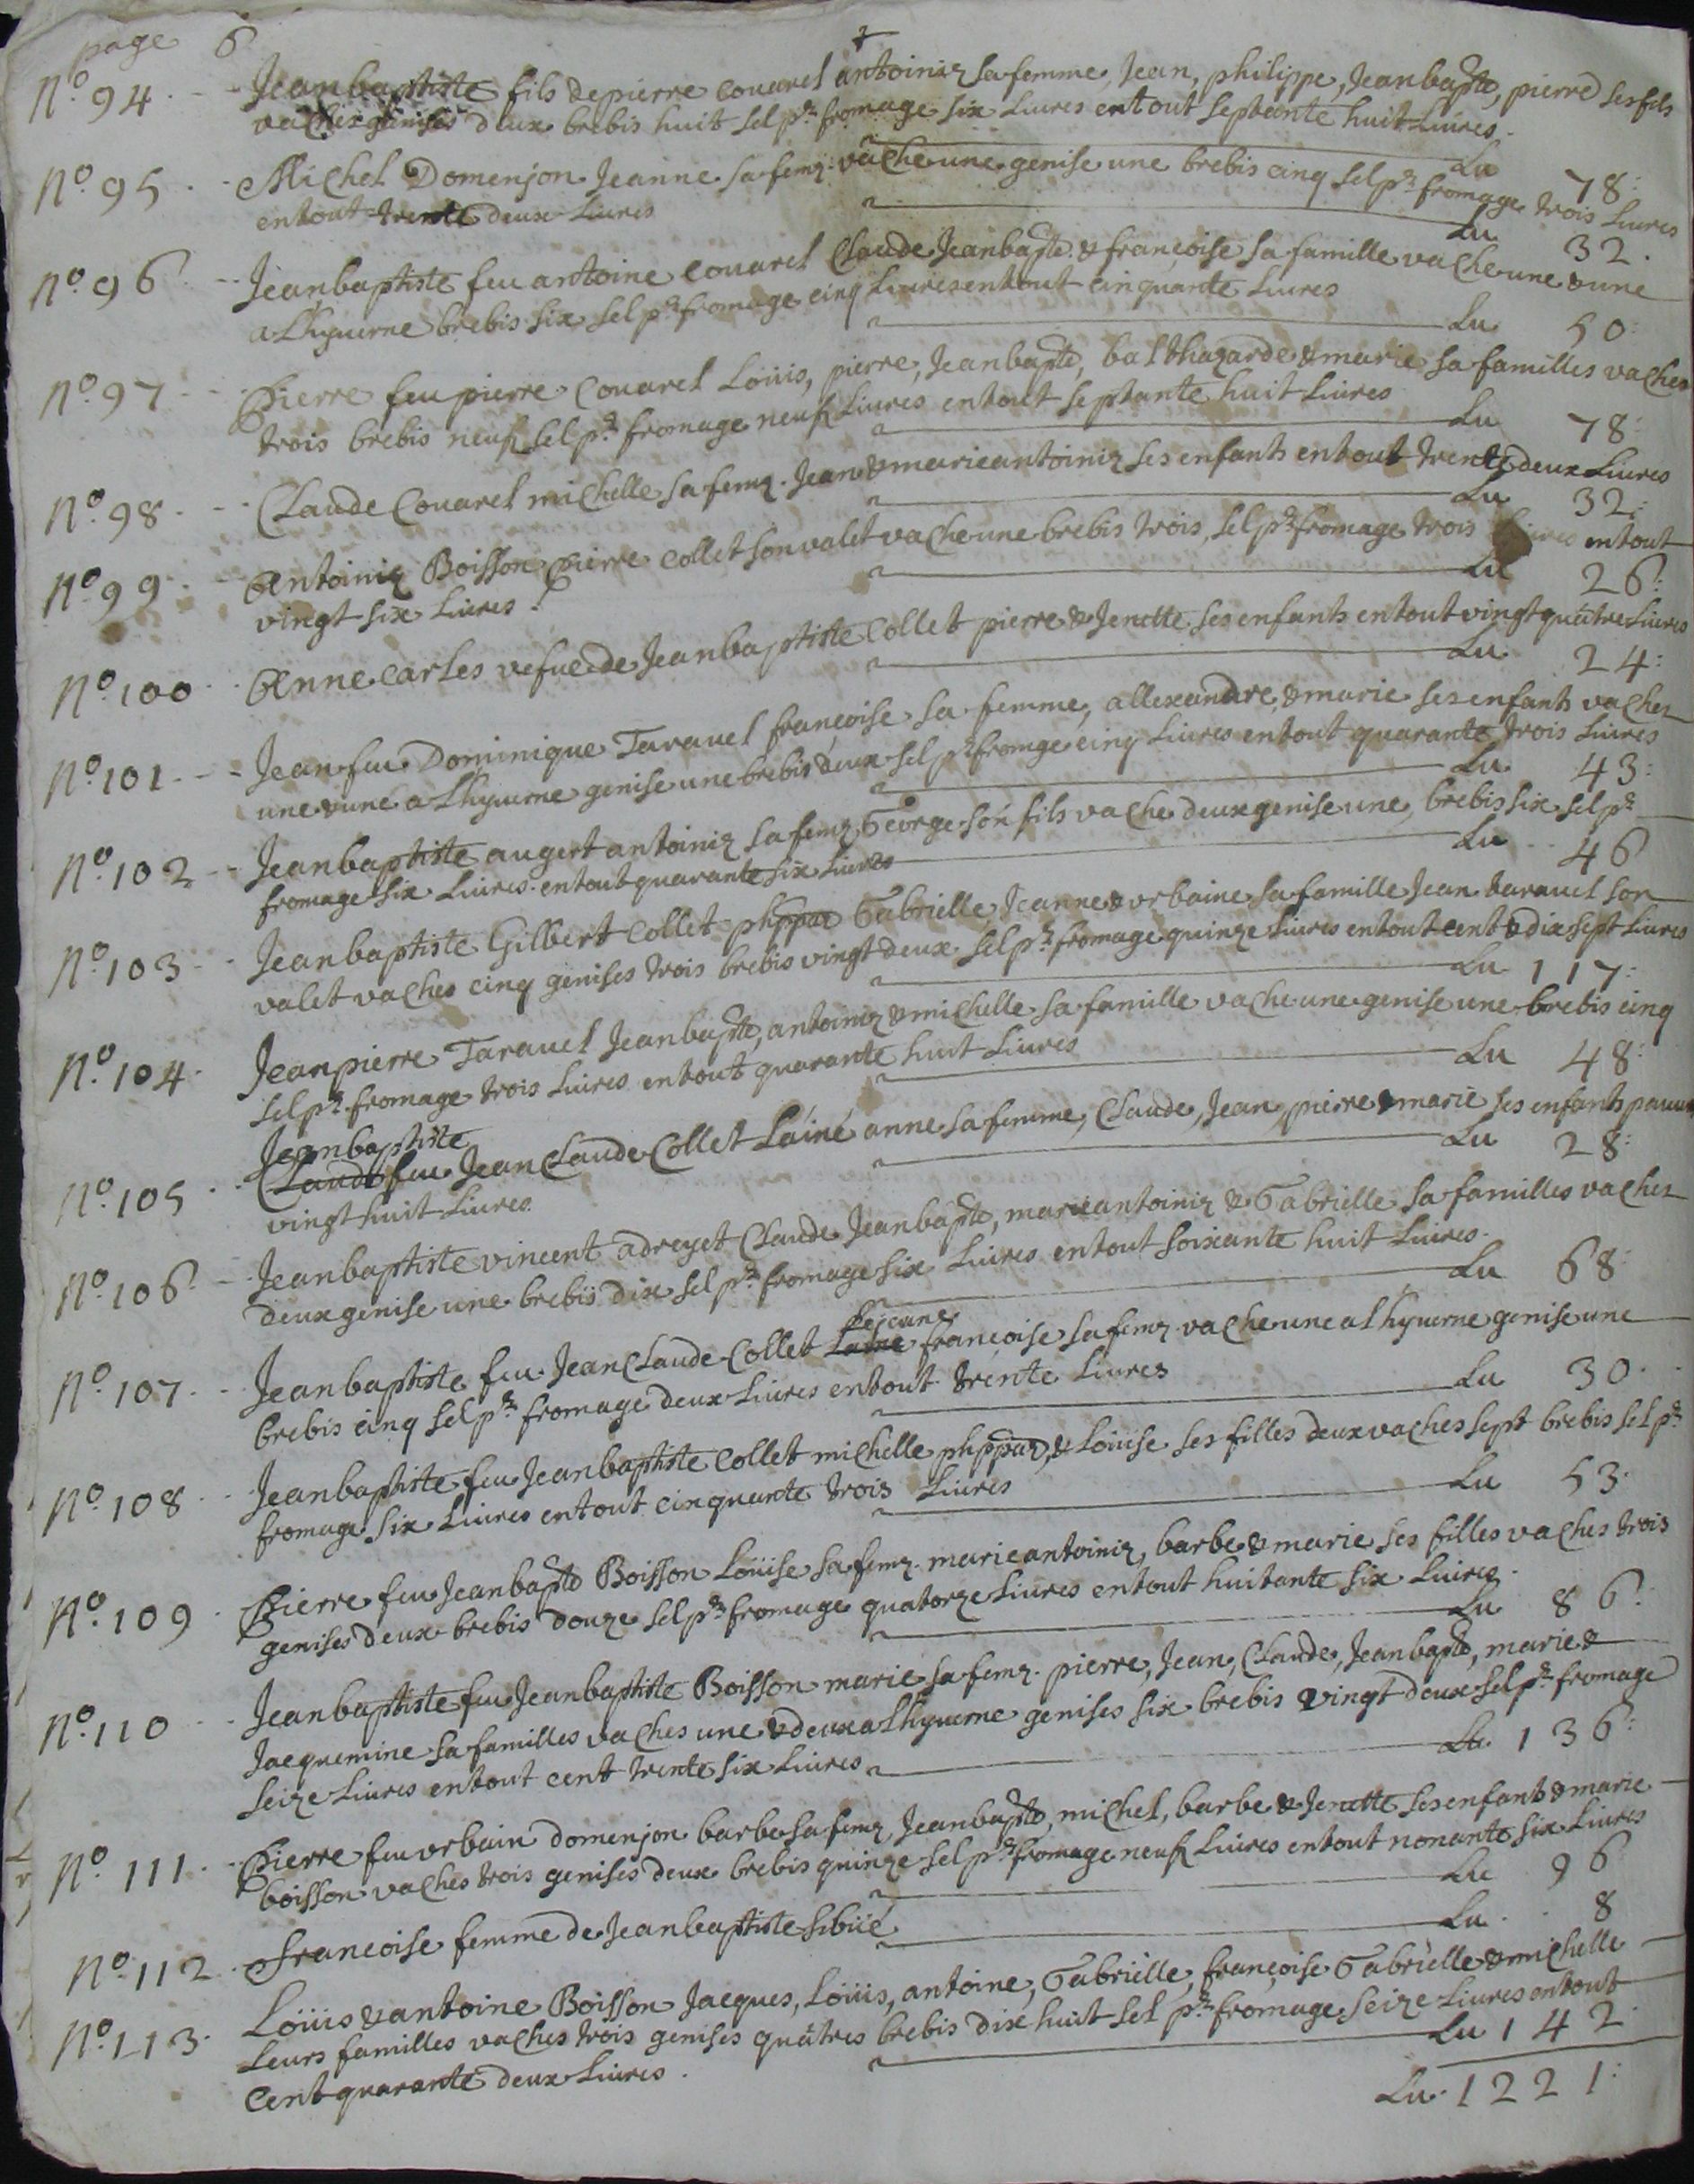 page 6
N.º 94 Jeanbaptiste fils de pierre couarel antoinie sa femme, Jean, philippe, Jeanbapte, pierre ses fils
vaches genises deux brebis huit sel pr fromage six Liures entout septante huit Liures.
Lu 78:
N.º 95 Michel Domenjon Jeanne sa feme vache une genise une brebis cinq sel pr fromage trois Liures
entout trente deux Liures
Lu 32.
N.º 96 Jeanbaptiste feu antoine couarel Claude Jeanbapte & françoise sa famille vache une & une
a Lhyuerne brebis six sel pr fromage cinq Liures entout cinquante Liures
Lu 50:
N.º 97 Pierre feu pierre Couarel Loüis, pierre, Jeanbapte, balthazarde & marie sa familles vaches
trois brebis neuf sel pr fromage neuf Liures entout septante huit Liures
Lu 78:
N.º 98 Claude Couarel michelle sa feme. Jean & marieantoinie ses enfants entout trente deux Liures
Lu 32:
N.º 99 Antoinie Boisson pierre collet son valet vache une brebis trois, sel pr fromage trois Liures entout
vingt six Liures.
Lu 26:
N.º 100 Anne carles vefue de Jeanbaptiste Collet pierre & Jenette ses enfants entout vingt quatre Liures
Lu 24:
N.º 101 Jean feu Dominique Tarauel françoise sa femme, allexandre, & marie ses enfants vaches
une & une a Lhyuerne genise une brebis deux sel pr fromge cinq Liures entout quarante trois Liures
Lu 43:
N.º 102 Jeanbaptiste augert antoinie sa feme George son fils vache deux genise une, brebis six sel pr
fromage six Liures entout quarante six Liures
Lu 46
N.º 103 Jeanbaptiste Gilbert Collet phppae Gabrielle Jeanne & vrbaine sa famille Jean tarauel son
valet vaches cinq genises trois brebis vingt deux sel pr fromage quinze Liures entout cent & dix sept Liures
Lu 117:
N.º 104 Jeanpierre Tarauel Jeanbapte, antoinie & michelle sa famille vache une genise une brebis cinq
sel pr fromage trois Liures entout quarante huit Liures
Lu 48:
Jeanbaptiste
N.º 105 Claude feu Jean Claude Collet Lainé anne sa femme, Claude, Jean, pierre & marie ses enfants pauure
vingt huit Liures.
Lu 28:
N.º 106 Jeanbaptiste vincent adreyet Claude Jeanbapte, marieantoinie & Gabrielle sa familles vaches
deux genise une brebis dix sel pr fromage six Liures entout soixante huit Liures.
Lu 68:
Lejeune
N.º 107 Jeanbaptiste feu Jean Claude Collet Laine françoise sa feme vache une a Lhyuerne genise une
brebis cinq sel pr fromage deux Liures entout trente Liures
Lu 30.
N.º 108 Jeanbaptiste feu Jeanbaptiste Collet michelle phppae, & Loüise ses filles deux vaches sept brebis sel pr
fromage six Liures entout cinquante trois Liures
Lu 53.
N.º 109 Pierre feu Jeanbapte Boisson Loüise sa feme. marieantoinie, barbe & marie ses filles vaches trois
genises deux brebis douze sel pr fromage quatorze Liures entout huitante six Liures.
Lu 86:
N.º 110 Jeanbaptiste feu Jeanbaptiste Boisson marie sa feme. pierre, Jean, Claude, Jeanbapte, marie &
Jacquemine sa familles vaches une & deux a Lhyuerne genises six brebis vingt deux sel pr fromage
seize Liures entout cent trente six Liures
Lu 136:
N.º 111 Pierre feu vrbain domenjon barbe sa feme, Jeanbapte, michel, barbe & Jenette ses enfants & marie
boisson vaches trois genises deux brebis quinze sel pr fromage neuf Liures entout nonante six Liures
Lu 96
N.º 112 Francoise femme de Jeanbaptiste sibüé
Lu 8
N.º 113 Loüis & antoine Boisson Jacques, Loüis, antoine, Gabrielle, françoise Gabrielle & michelle
Leurs familles vaches trois genises quatres brebis dix huit sel pr fromage seize Liures entout
Cent quarante deux Liures.
Lu 142
Lu. 1221: